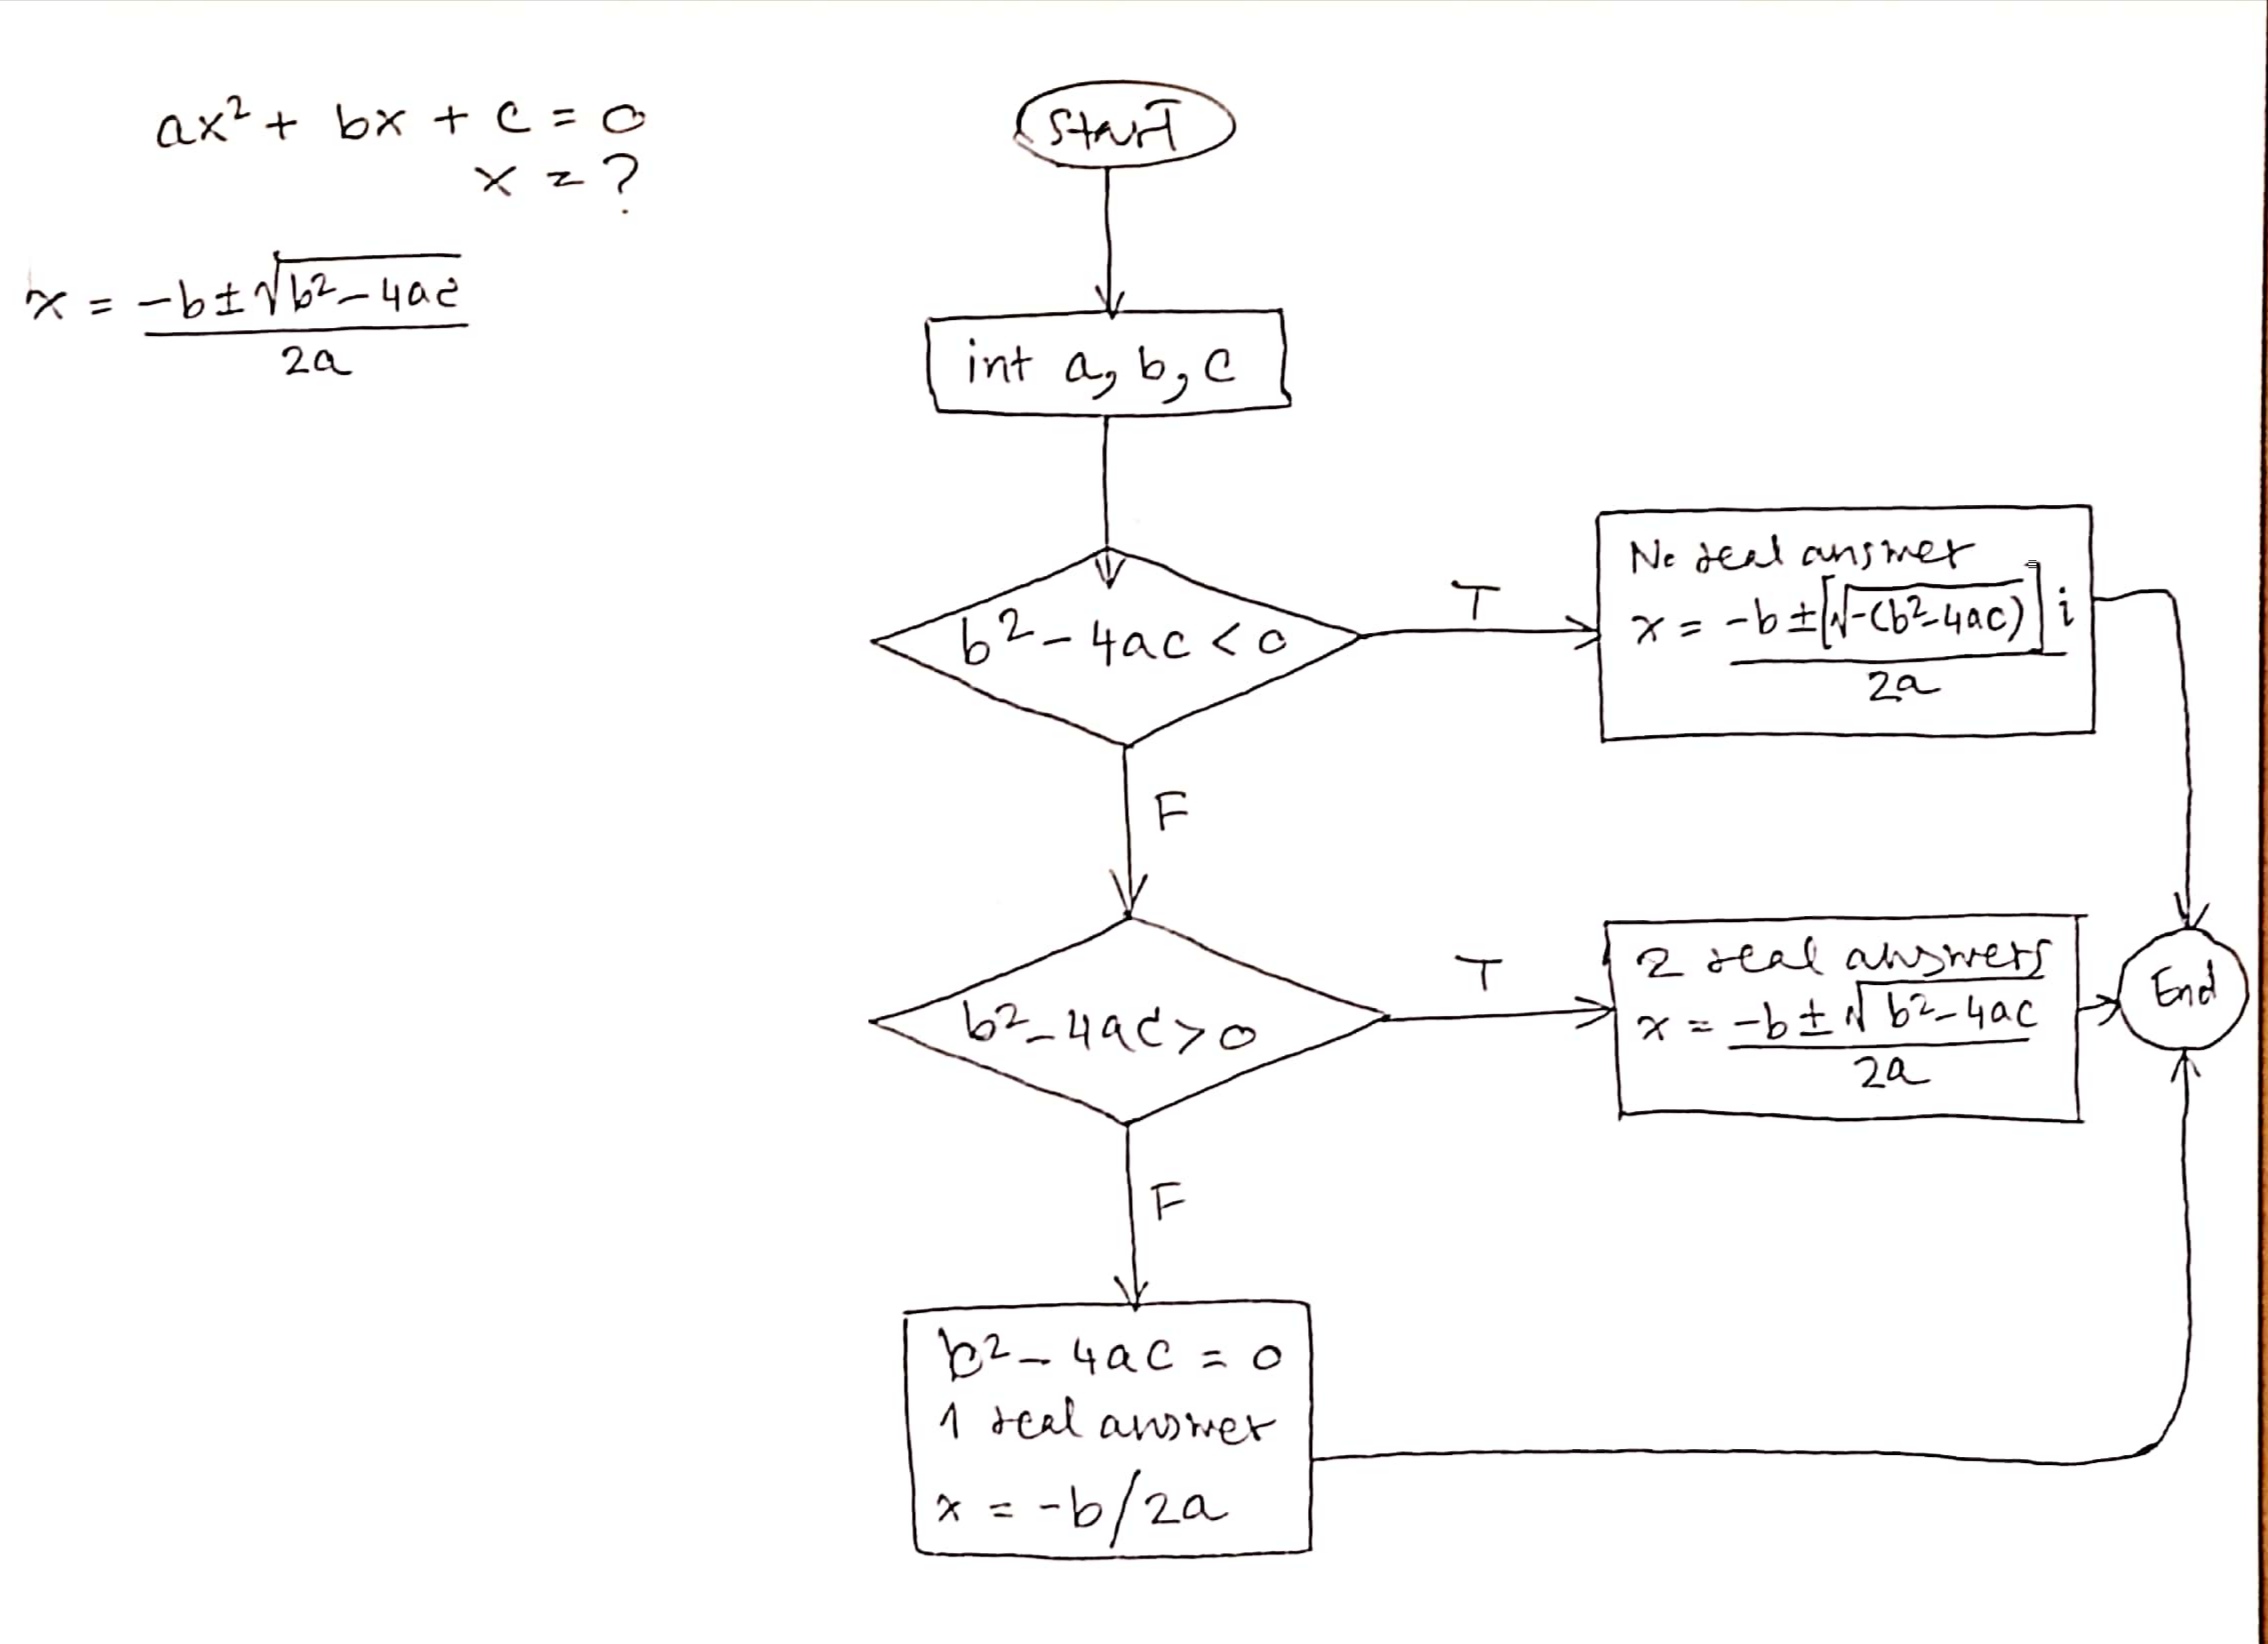 ax² + bx + c = 0
x = ?
x = -b ± √b² - 4ac
2a
Start
int a, b, c
b² - 4ac < 0
T
No real answer
x = -b ± [√-(b² - 4ac)] i
2a
F
b² - 4ac > 0
T
2 real answers
x = -b ± √b² - 4ac
2a
End
F
b² - 4ac = 0
1 real answer
x = -b/2a